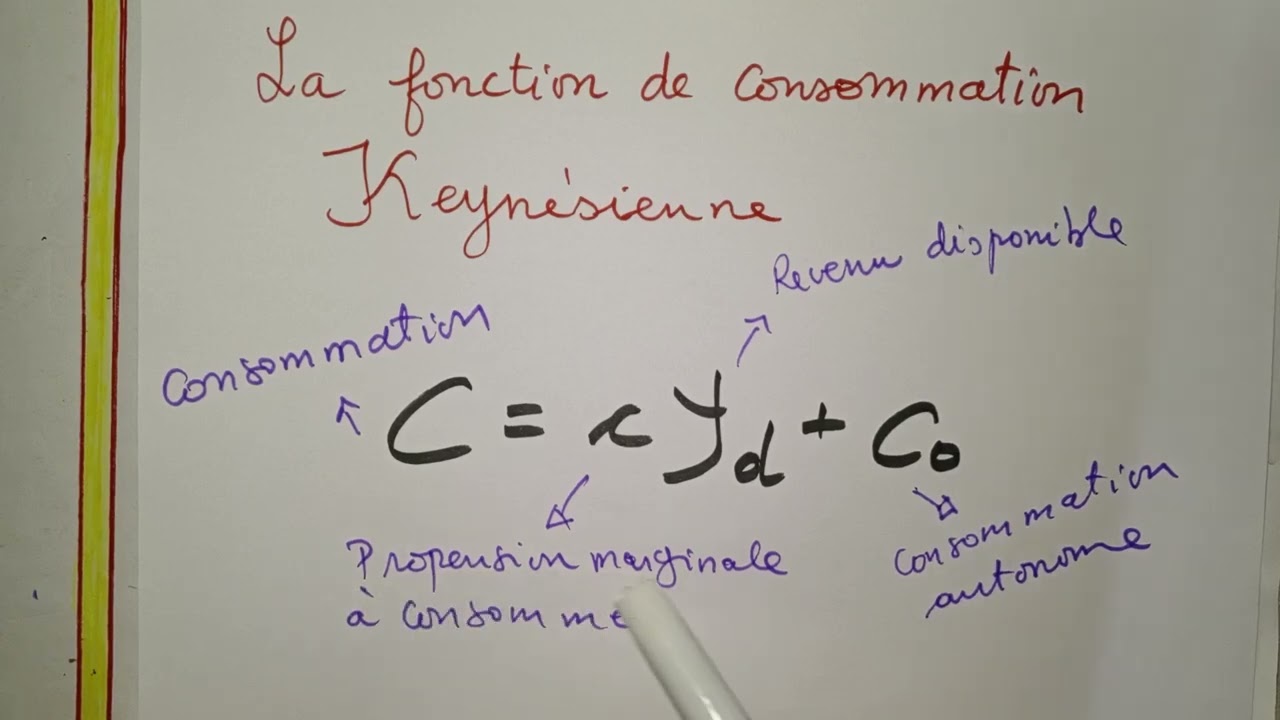 La fonction de consommation
Keynésienne
Revenu disponible
Consommation
C = c Yd + C0
Propension marginale
à consomme
Consommation
autonome